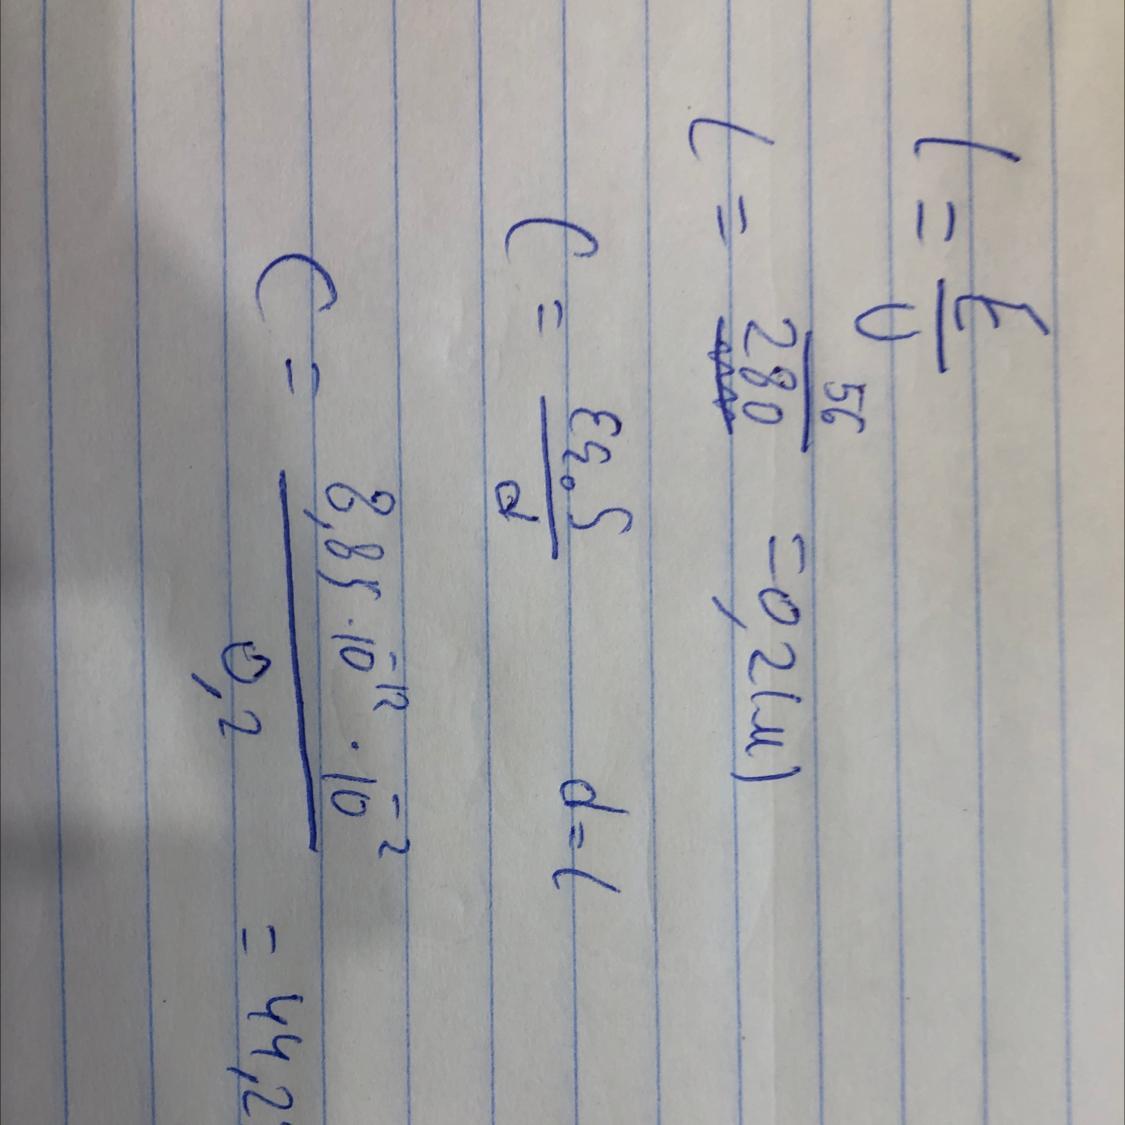 l = E / U
l = 56 / 280 = 0,2 (м)
C = εε₀S / d d = l
C = 8,85 · 10⁻¹² · 10⁻² / 0,2 = 44,2